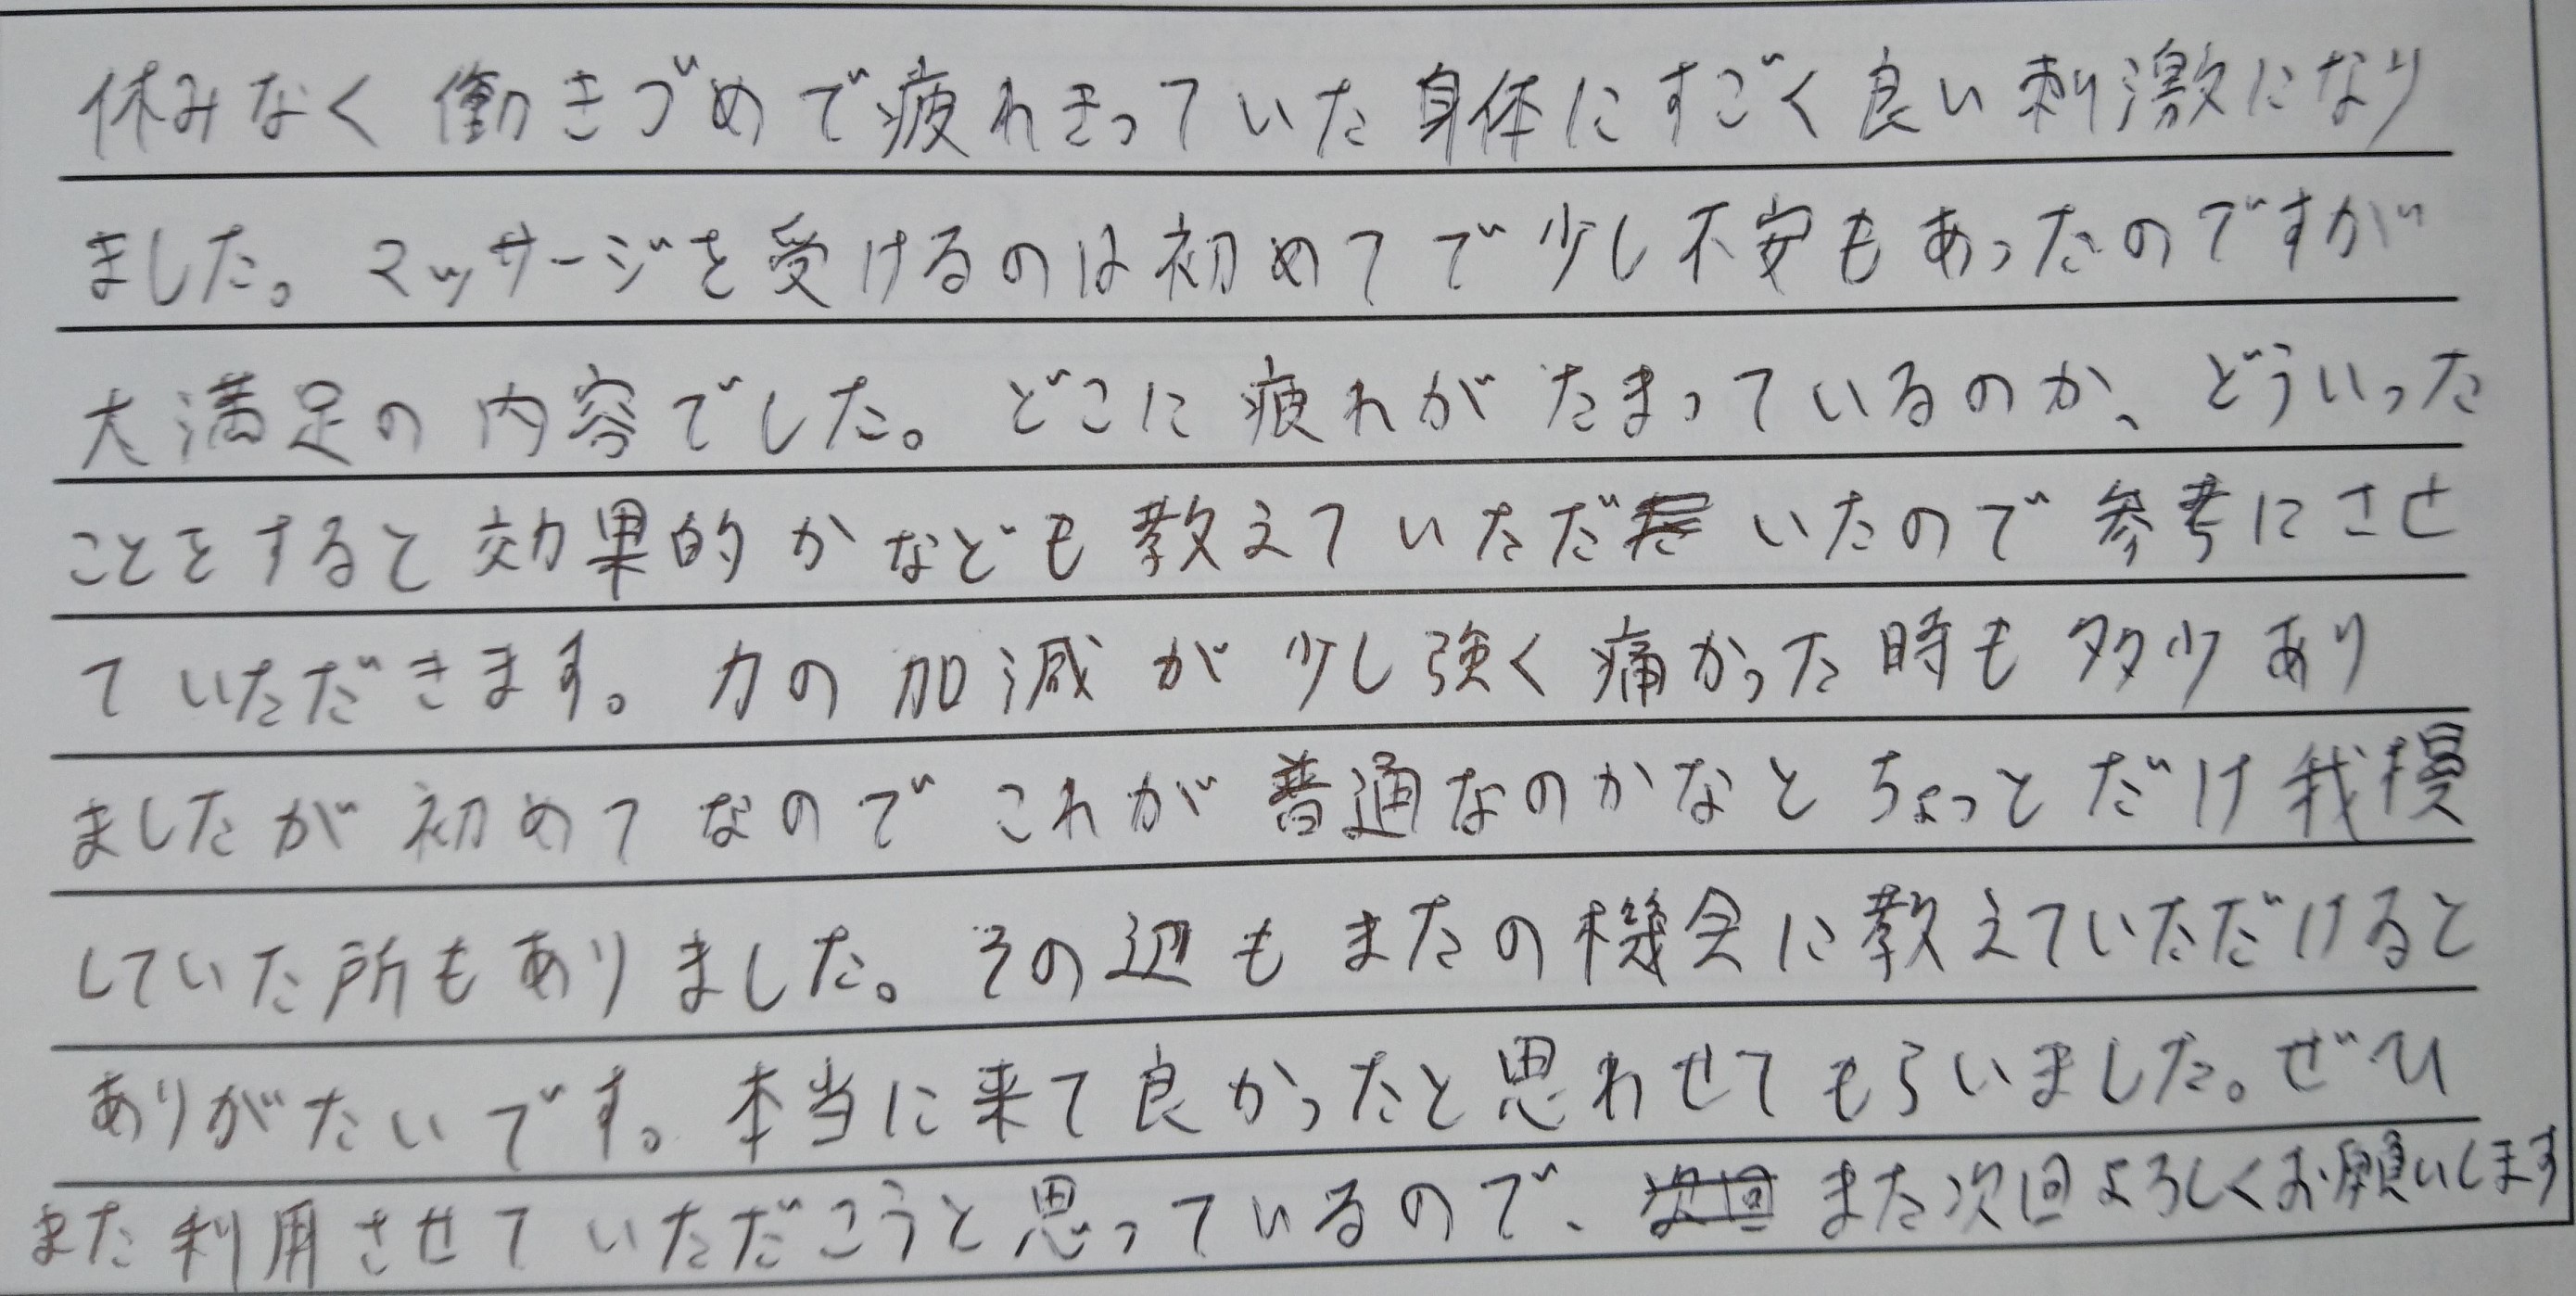 休みなく働きづめで疲れきっていた身体にすごく良い刺激になり
ました。マッサージを受けるのは初めてで少し不安もあったのですが
大満足の内容でした。どこに疲れがたまっているのか、どういった
ことをすると効果的かなども教えていただいたので参考にさせ
ていただきます。力の加減が少し強く痛かった時も多少あり
ましたが初めてなのでこれが普通なのかなとちょっとだけ我慢
していた所もありました。その辺もまたの機会に教えていただけると
ありがたいです。本当に来て良かったと思わせてもらいました。ぜひ
また利用させていただこうと思っているので、また次回よろしくお願いします